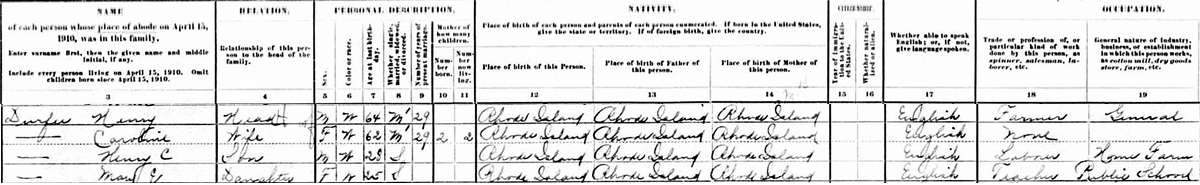 NAME RELATION. PERSONAL DESCRIPTION. NATIVITY. CITIZENSHIP. OCCUPATION.
of each person whose place of abode on April 15, 1910, was in this family.
Enter surname first, then the given name and middle initial, if any.
Include every person living on April 15, 1910. Omit children born since April 15, 1910.
Relationship of this person to the head of the family.
Sex.
Color or race.
Age at last birthday.
Whether single, married, widowed, or divorced.
Number of years of present marriage.
Mother of how many children.
Number born.
Number now living.
Place of birth of each person and parents of each person enumerated. If born in the United States, give the state or territory. If of foreign birth, give the country.
Place of birth of this Person.
Place of birth of Father of this person.
Place of birth of Mother of this person.
Year of immigration to the United States.
Whether naturalized or alien.
Whether able to speak English; or, if not, give language spoken.
Trade or profession of, or particular kind of work done by this person, as spinner, salesman, laborer, etc.
General nature of industry, business, or establishment in which this person works, as cotton mill, dry goods store, farm, etc.
3 4 5 6 7 8 9 10 11 12 13 14 15 16 17 18 19
Durfee Henry Head M W 64 M1 29 Rhode Island Rhode Island Rhode Island English Farmer General
— Caroline Wife F W 62 M1 29 2 2 Rhode Island Rhode Island Rhode Island English None
— Henry C Son M W 28 S Rhode Island Rhode Island Rhode Island English Laborer Home Farm
— Mary E Daughter F W 25 S Rhode Island Rhode Island Rhode Island English Teacher Public School